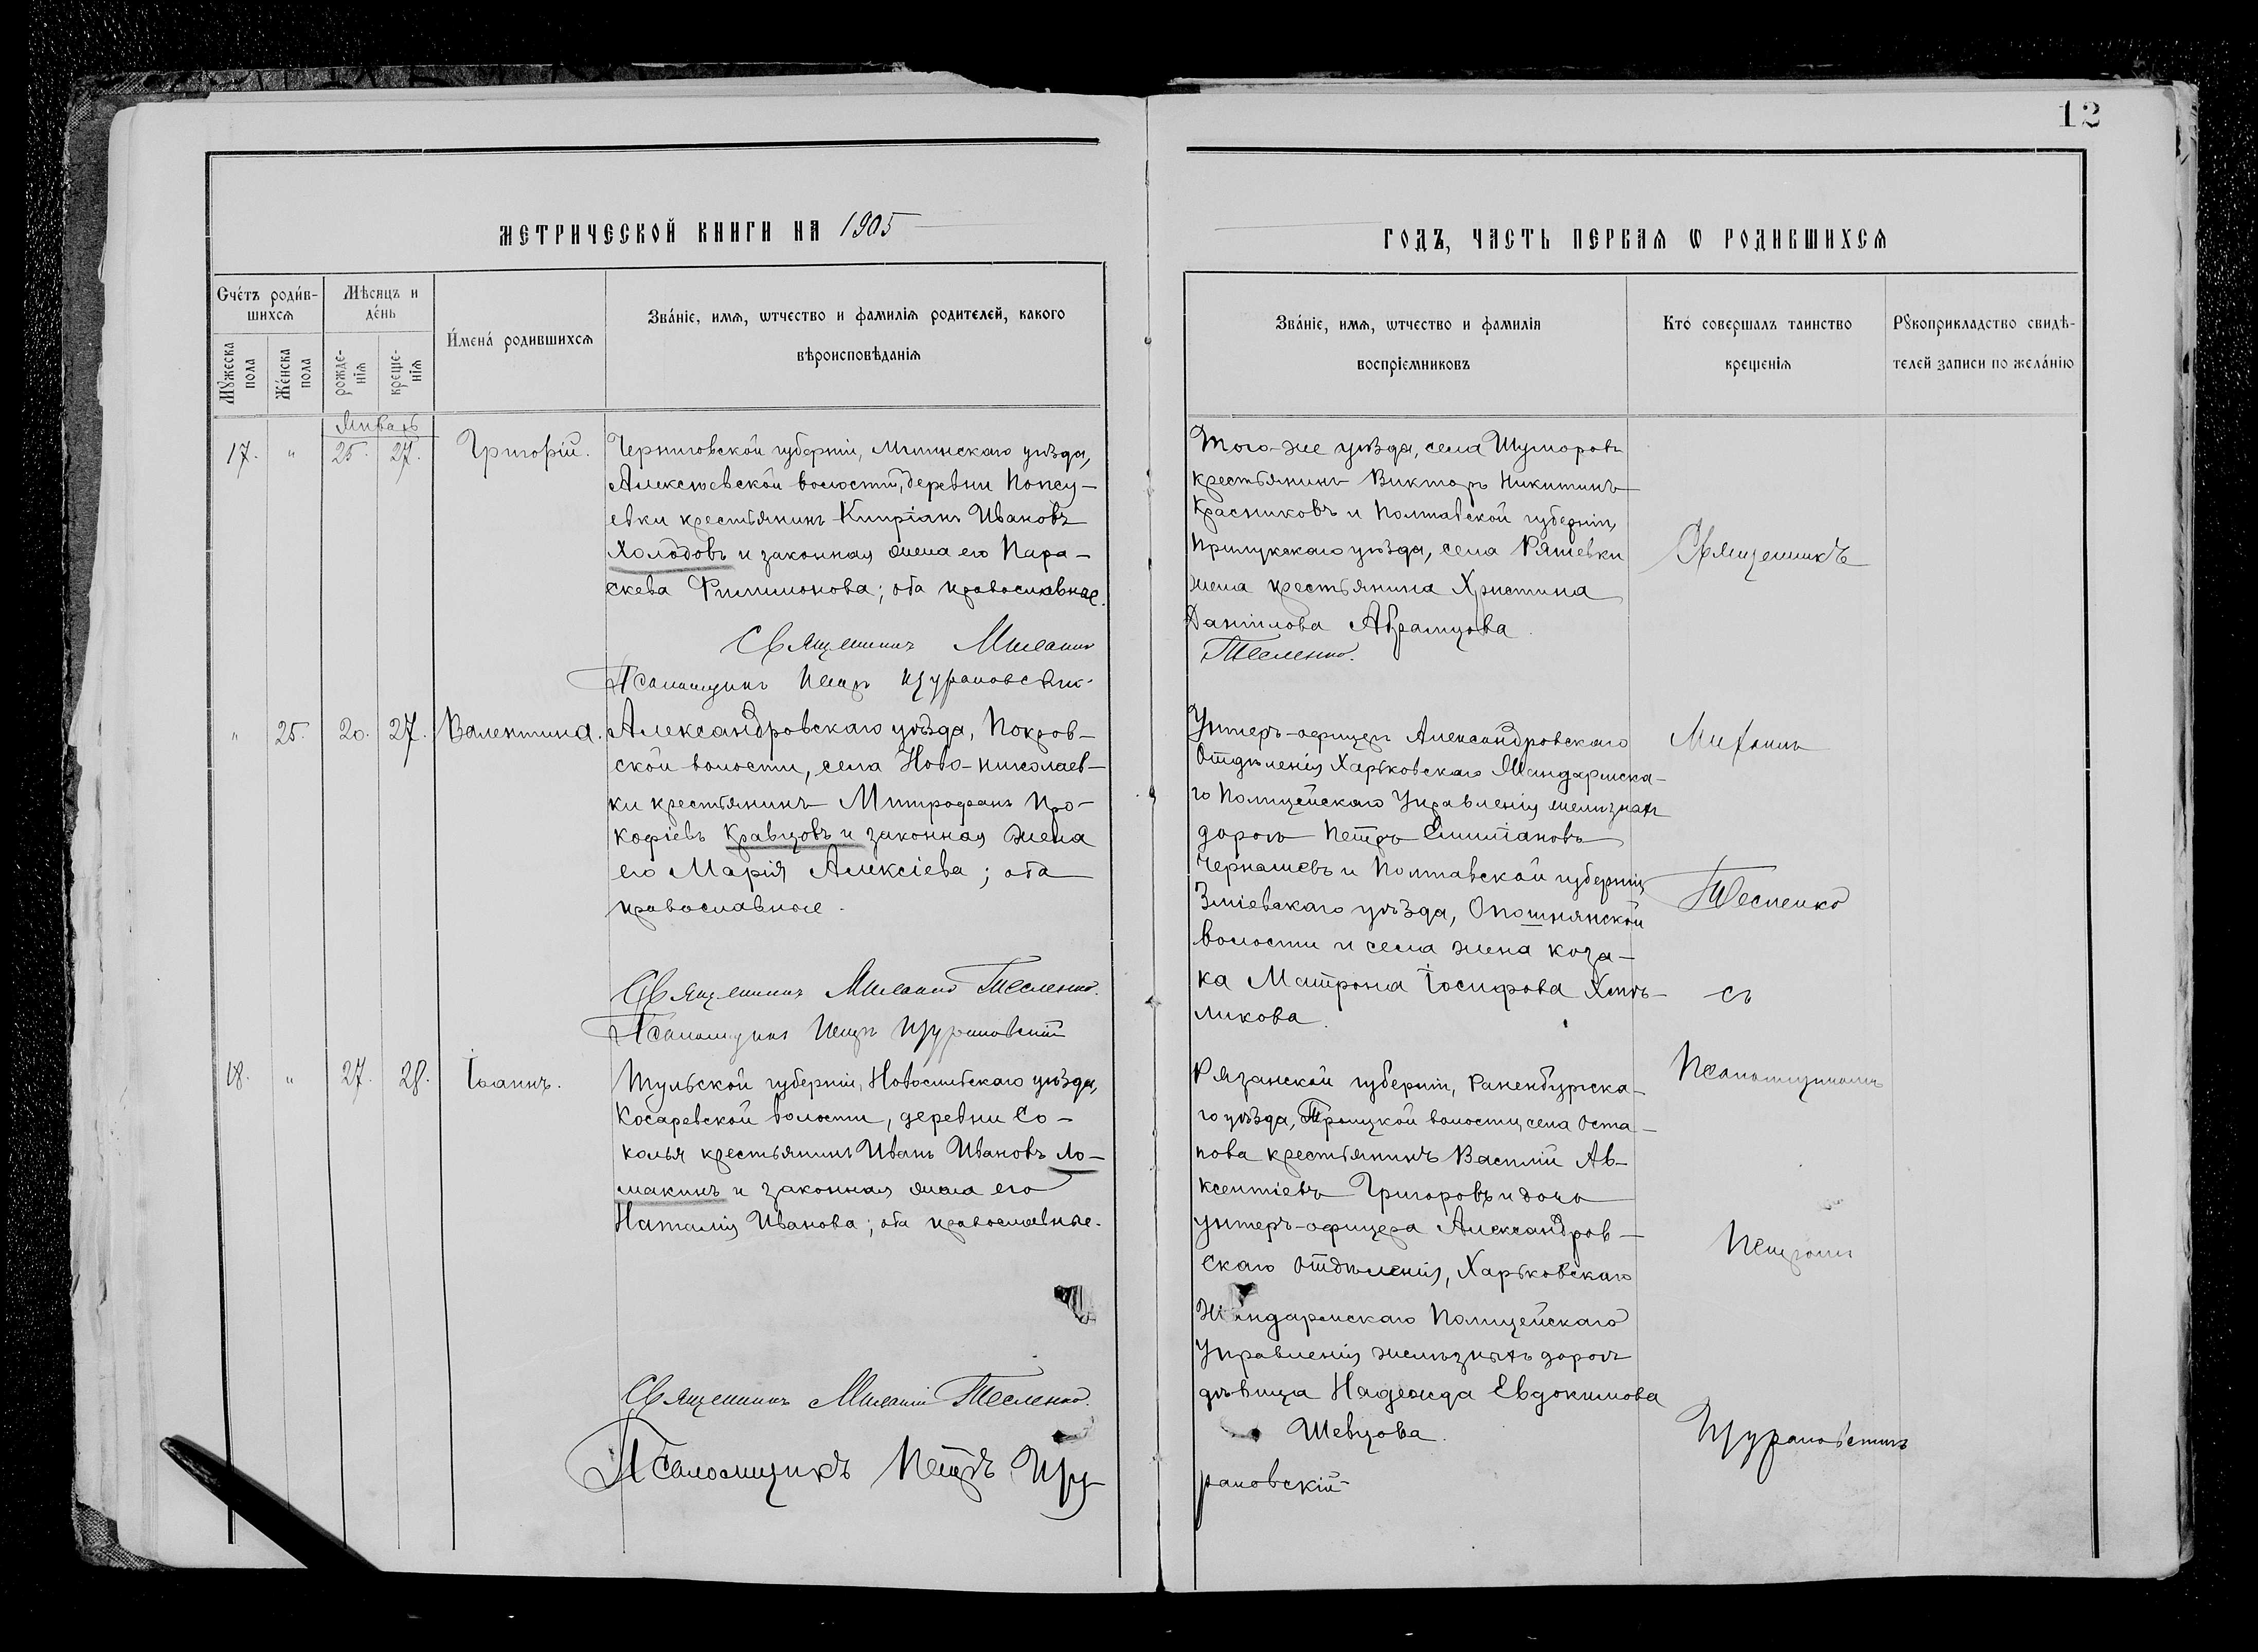 12
МЕТРИЧЕСКОЙ КНИГИ НА 1905
ГОДЪ, ЧАСТЬ ПЕРВАЯ Ѡ РОДИВШИХСЯ
Счетъ родив-
шихся
Мѣсяцъ и
день
Мужеска
пола
Женска
пола
рожде-
нія
креще-
нія
Имена родившихся
Званіе, имя, ѡтчество и фамилія родителей, какого
вѣроисповѣданія
Званіе, имя, ѡтчество и фамилія
воспріемниковъ
Кто совершалъ таинство
крещенія
Рукоприкладство свидѣ-
телей записи по желанію
Январь
17. " 25. 27. Григорій.
Черниговской губерніи, Мглинскаго уѣзда,
Алексѣевской волости, деревни Попсу-
евки крестьянинъ Кипріанъ Ивановъ
Холодовъ и законная жена его Пара-
скева Филимонова; оба православные.
Священникъ Михаилъ
Псаломщикъ Петръ Щурановскій
Того-же уѣзда, села Шуморова
крестьянинъ Викторъ Никитинъ
Красниковъ и Полтавской губерніи,
Прилукскаго уѣзда, села Ряшевки
жена крестьянина Христина
Данілова Абрамцова.
Тесленко.
Священникъ
" 25. 20. 27. Валентина.
Александровскаго уѣзда, Покров-
ской волости, села Ново-Николаев-
ки крестьянинъ Митрофанъ Про-
кофіевъ Кравцовъ и законная жена
его Марія Алексіева; оба
православные.
Священникъ Михаилъ Тесленко.
Псаломщикъ Петръ Щурановскій
Унтеръ-офицеръ Александровскаго
Отдѣленія Харьковскаго Жандармска-
го Полицейскаго Управленія желѣзныхъ
дорогъ Петръ Емиліановъ
и Полтавской губерніи,
Зміевскаго уѣзда, Опошнянской
волости и села жена коза-
ка Матрона Іосифова Хмѣ-
ликова.
Михаилъ
Тесленко
съ
18. " 27. 28. Іоаннъ.
Тульской губерніи, Новосильскаго уѣзда,
Косаревской волости, деревни Со-
колья крестьянинъ Иванъ Ивановъ Ло-
макинъ и законная жена его
Наталія Иванова; оба православные.
Священникъ Михаилъ Тесленко.
Псаломщикъ Петръ Щу-
Рязанской губерніи, Раненбургска-
го уѣзда, Троицкой волости, села Оста-
пова крестьянинъ Василій Ав-
ксентіевъ Григоровъ и дочь
унтеръ-офицера Александров-
скаго Отдѣленія, Харьковскаго
Жандармскаго Полицейскаго
Управленія желѣзныхъ дорогъ
дѣвица Надежда Евдокимова
Шевцова.
рановскій
Псаломщикомъ
Петромъ
Щурановскимъ